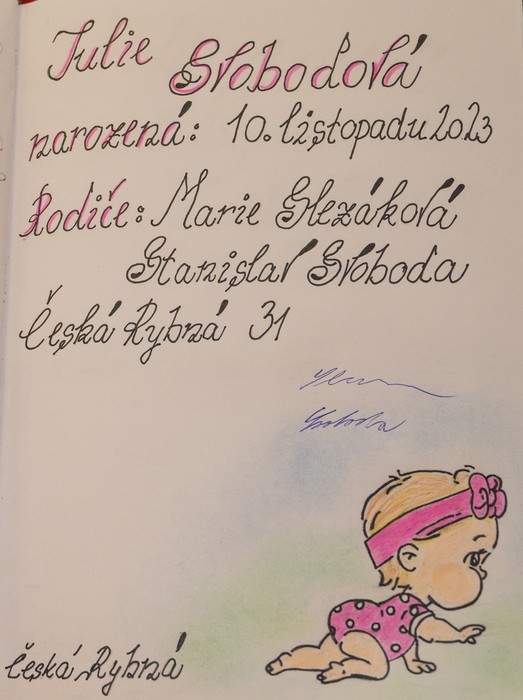 Julie Svobodová
narozená: 10. listopadu 2023
Rodiče: Marie Slezáková
Stanislav Svoboda
Česká Rybná 31
Svoboda
Česká Rybná